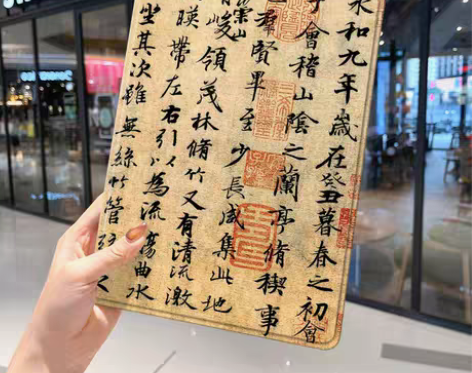 永和九年歲在癸丑暮春之初會
會稽山陰之蘭亭脩稧事
群賢畢至少長咸集此地
有崇山峻領茂林脩竹又有清流激
暎帶左右引以為流觴曲水
坐其次雖無絲竹管